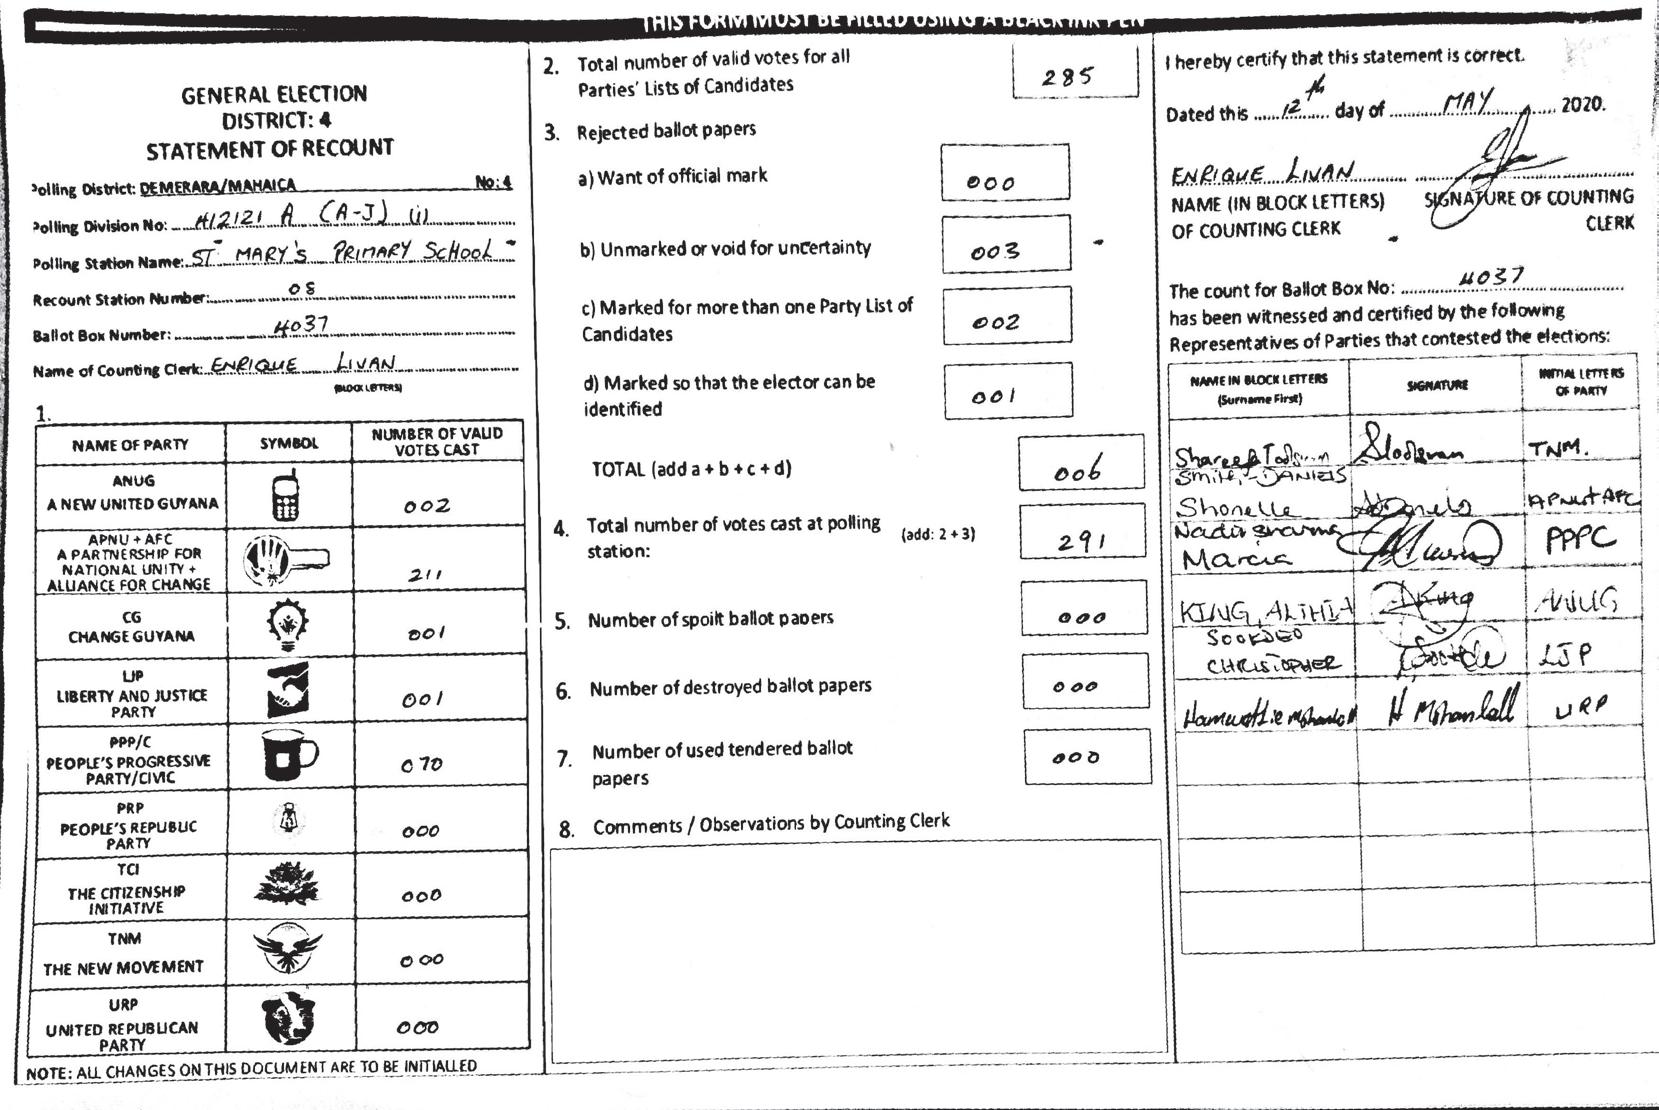 THIS FORM MUST BE FILLED USING A BLACK INK PEN
GENERAL ELECTION
DISTRICT: 4
STATEMENT OF RECOUNT
Polling District: DEMERARA/MAHAICA No: 4
Polling Division No: 412121 A (A-J) (i)
Polling Station Name: ST MARY'S PRIMARY SCHOOL
Recount Station Number: 08
Ballot Box Number: 4037
Name of Counting Clerk: ENRIQUE LIVAN
(BLOCK LETTERS)
1.
NAME OF PARTY SYMBOL NUMBER OF VALID VOTES CAST
ANUG
A NEW UNITED GUYANA 002
APNU + AFC
A PARTNERSHIP FOR
NATIONAL UNITY +
ALLIANCE FOR CHANGE 211
CG
CHANGE GUYANA 001
LJP
LIBERTY AND JUSTICE
PARTY 001
PPP/C
PEOPLE'S PROGRESSIVE
PARTY/CIVIC 070
PRP
PEOPLE'S REPUBLIC
PARTY 000
TCI
THE CITIZENSHIP
INITIATIVE 000
TNM
THE NEW MOVEMENT 000
URP
UNITED REPUBLICAN
PARTY 000
NOTE: ALL CHANGES ON THIS DOCUMENT ARE TO BE INITIALLED
2. Total number of valid votes for all
Parties' Lists of Candidates 285
3. Rejected ballot papers
a) Want of official mark 000
b) Unmarked or void for uncertainty 003
c) Marked for more than one Party List of
Candidates 002
d) Marked so that the elector can be
identified 001
TOTAL (add a + b + c + d) 006
4. Total number of votes cast at polling
station: (add: 2 + 3) 291
5. Number of spoilt ballot papers 000
6. Number of destroyed ballot papers 000
7. Number of used tendered ballot
papers 000
8. Comments / Observations by Counting Clerk
I hereby certify that this statement is correct.
Dated this 12th day of MAY 2020.
ENRIQUE LIVAN
NAME (IN BLOCK LETTERS) SIGNATURE OF COUNTING
OF COUNTING CLERK CLERK
The count for Ballot Box No: 4037
has been witnessed and certified by the following
Representatives of Parties that contested the elections:
NAME IN BLOCK LETTERS (Surname First) SIGNATURE INITIAL LETTERS OF PARTY
TNM.
SMITH-DANIELS
Shonelle APNU+AFC
Marcia PPPC
KING, ALTHIA King ANUG
SOOKDEO
CHRISTOPHER LJP
H Mohanlall URP